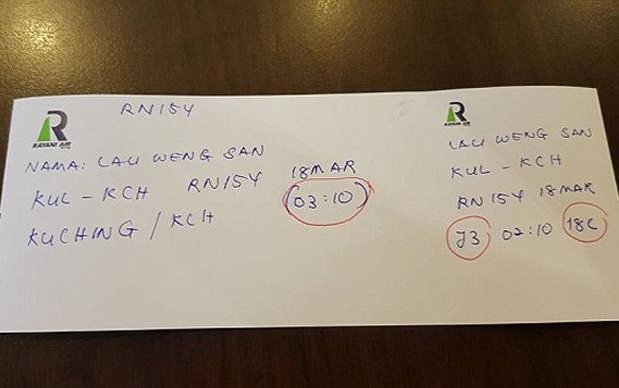 RN154
R
RAYANI AIR
NAMA: LAU WENG SAN
18MAR
KUL - KCH RN154
(03:10)
KUCHING / KCH
R
RAYANI AIR
LAU WENG SAN
KUL - KCH
RN154 18MAR
J3 02:10 18C